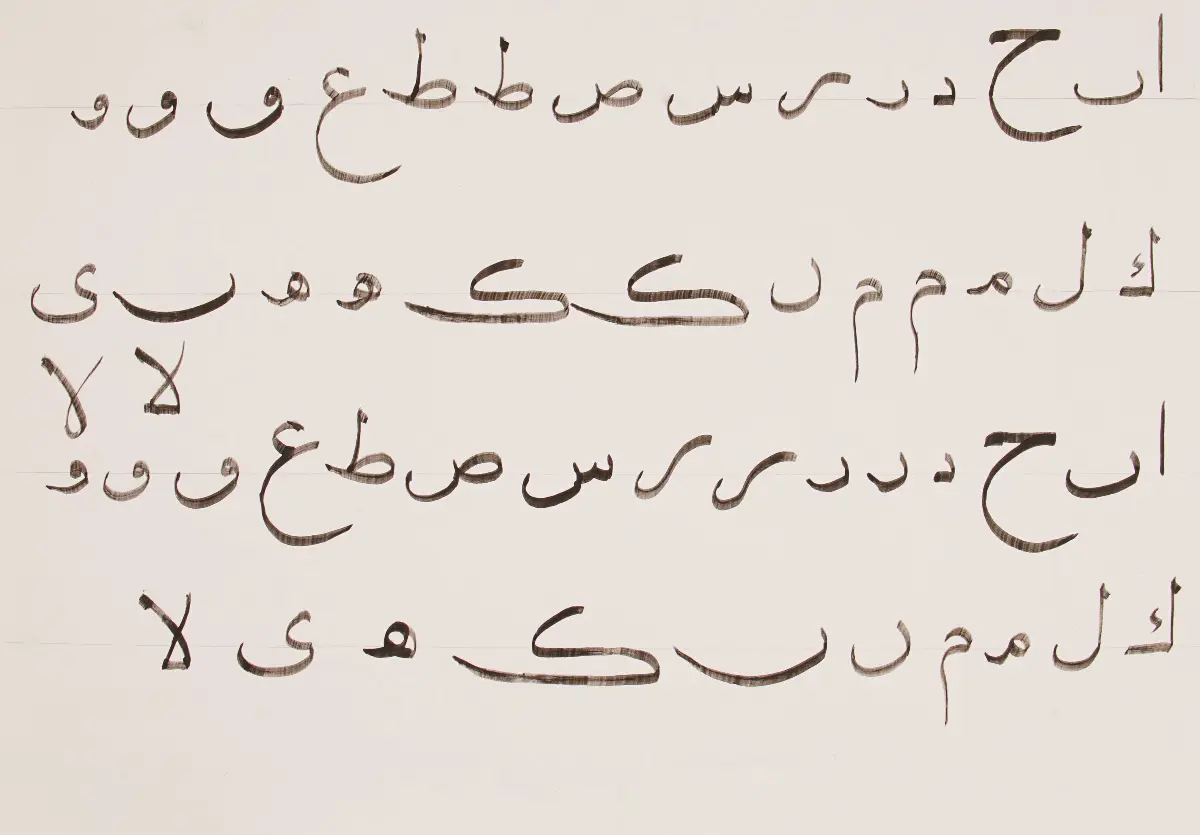 ا ں ح د د ر س ص ط ط ع ٯ و و
ك ل م م م ں ک ک ه ه ٮ ى
لا لا
ا ں ح د د د ر ر س ص ط ع ٯ و و
ك ل م م ں ٮ ک ه ى لا